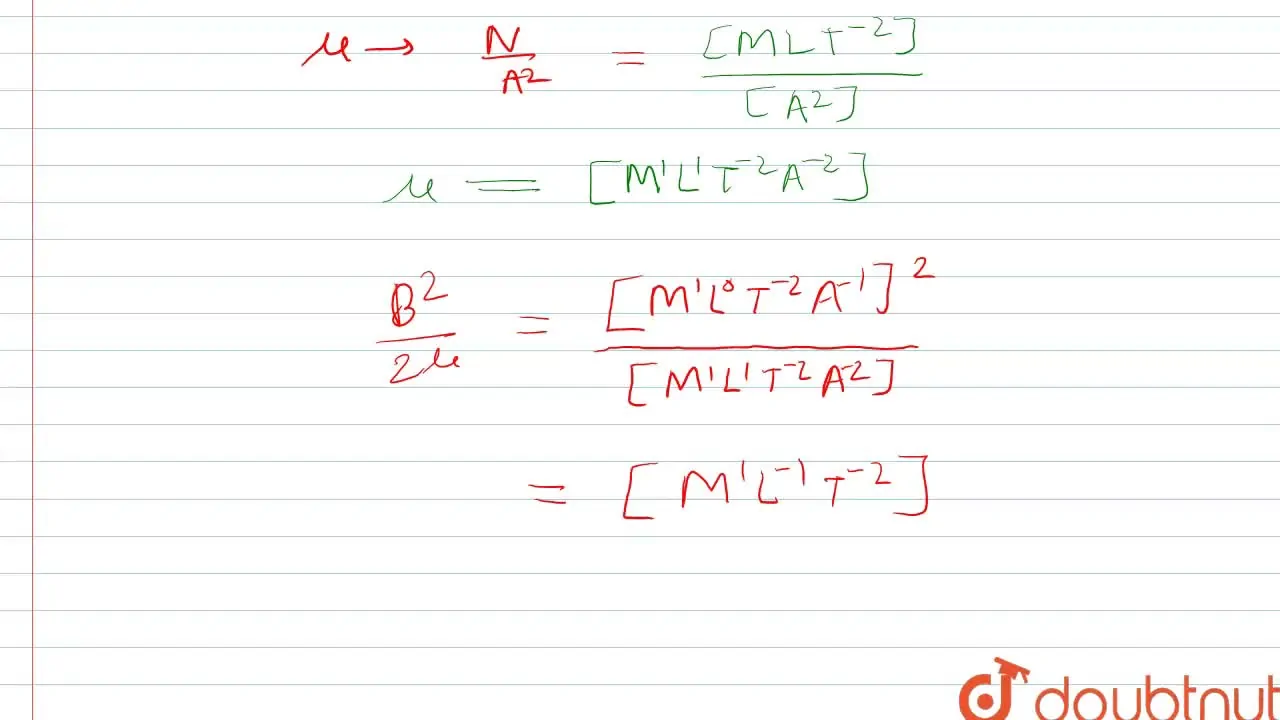 μ → N/A² = [MLT⁻²]/[A²]
μ = [M¹L¹T⁻²A⁻²]
B²/2μ = [M¹L⁰T⁻²A⁻¹]²/[M¹L¹T⁻²A⁻²]
= [M¹L⁻¹T⁻²]
doubtnut